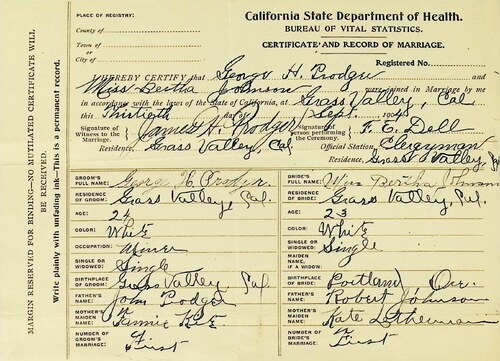 California State Department of Health.
BUREAU OF VITAL STATISTICS.
CERTIFICATE AND RECORD OF MARRIAGE.
PLACE OF REGISTRY:
County of
Town of
or
City of
Registered No.
I HEREBY CERTIFY that George H. Prodger and
Miss Bertha Johnson were joined in Marriage by me
in accordance with the laws of the State of California, at Grass Valley, Cal
this Thirtieth day of Sept. 1904
Signature of Witness to the Marriage. James H. Prodger Signature of person performing the Ceremony. F. E. Dell
Residence, Grass Valley, Cal Official Station, Clergyman
Residence, Grass Valley, Cal
GROOM'S FULL NAME: George H. Prodger
RESIDENCE OF GROOM: Grass Valley, Cal.
AGE: 24
COLOR: White
OCCUPATION: Miner
SINGLE OR WIDOWED: Single
BIRTHPLACE OF GROOM: Grass Valley Cal.
FATHER'S NAME: John Prodger
MOTHER'S MAIDEN NAME: Fannie
NUMBER OF GROOM'S MARRIAGE: First
BRIDE'S FULL NAME: Miss Bertha Johnson
RESIDENCE OF BRIDE: Grass Valley, Cal.
AGE: 23
COLOR: White
SINGLE OR WIDOWED: Single
MAIDEN NAME, IF A WIDOW:
BIRTHPLACE OF BRIDE: Portland, Ore.
FATHER'S NAME: Robert Johnson
MOTHER'S MAIDEN NAME: Kate
NUMBER OF BRIDE'S MARRIAGE: First
MARGIN RESERVED FOR BINDING—NO MUTILATED CERTIFICATE WILL
BE RECEIVED.
Write plainly with unfading ink—This is a permanent record.